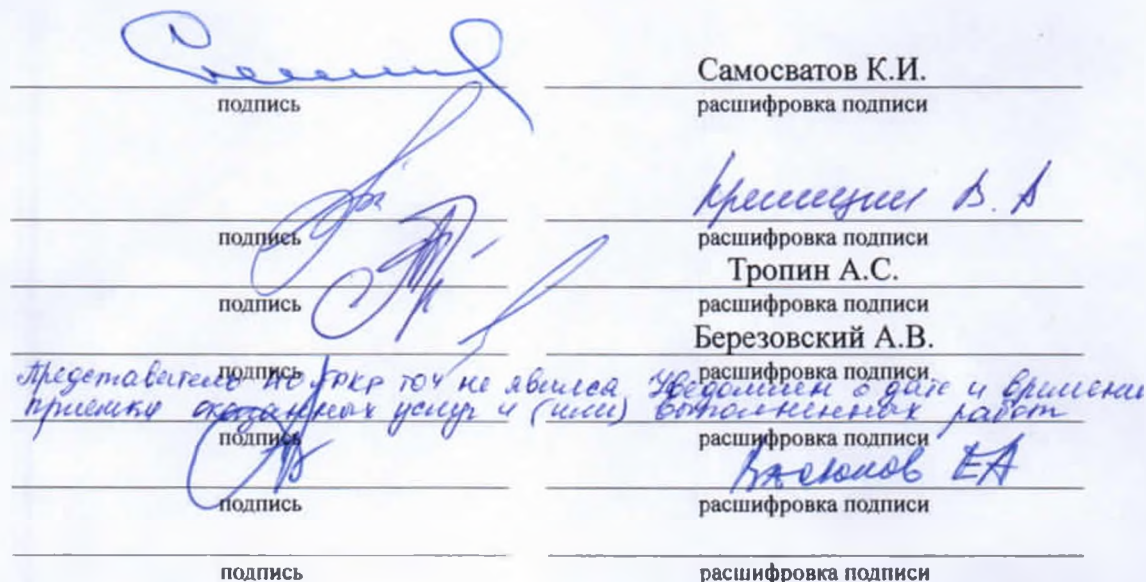 Самосватов К.И.
подпись расшифровка подписи
В. А
подпись расшифровка подписи
Тропин А.С.
подпись расшифровка подписи
Березовский А.В.
подпись расшифровка подписи
Представитель не явился. Уведомлен о дате и времени
приемки оказанных услуг и (или) выполненных работ
подпись расшифровка подписи
ЕА
подпись расшифровка подписи
подпись расшифровка подписи